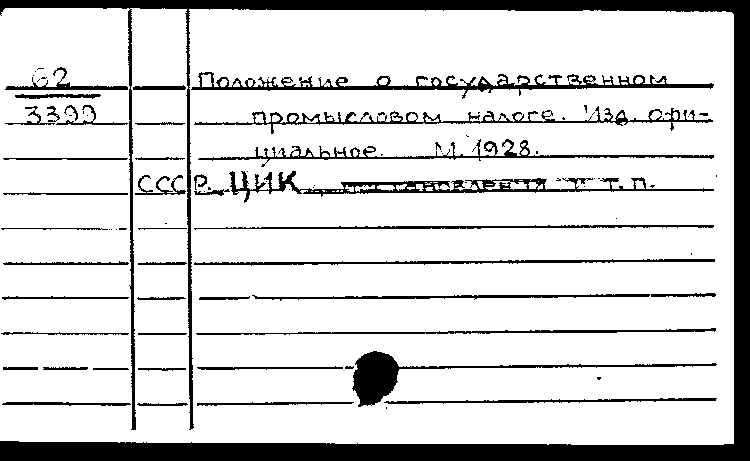 62
3399
Положение о государственном
промысловом налоге. Изд. офи-
циальное. М. 1928.
СССР. ЦИК. постановления и т.п.